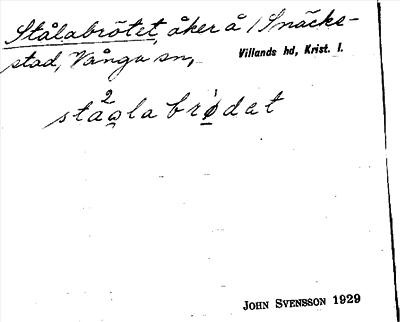 Stålabrötet, åker å 1 Snäcke-
stad, Vånga sn,
Villands hd, Krist. l.
ståo̯labrǿdat
JOHN SVENSSON 1929